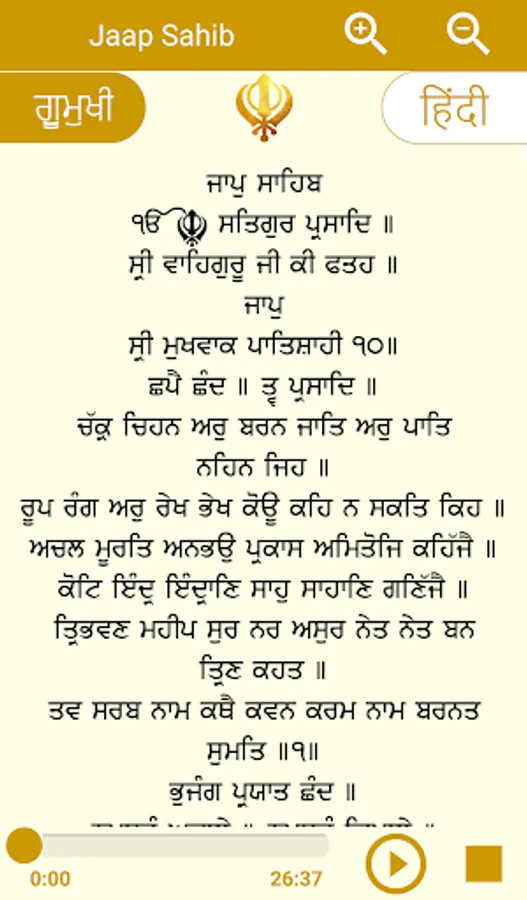 Jaap Sahib
ਗੁਰਮੁਖੀ
हिंदी
ਜਾਪੁ ਸਾਹਿਬ
ੴ ਸਤਿਗੁਰ ਪ੍ਰਸਾਦਿ ॥
ਸ੍ਰੀ ਵਾਹਿਗੁਰੂ ਜੀ ਕੀ ਫਤਹ ॥
ਜਾਪੁ
ਸ੍ਰੀ ਮੁਖਵਾਕ ਪਾਤਿਸ਼ਾਹੀ ੧੦॥
ਛਪੈ ਛੰਦ ॥ ਤ੍ਵ ਪ੍ਰਸਾਦਿ ॥
ਚੱਕ੍ਰ ਚਿਹਨ ਅਰੁ ਬਰਨ ਜਾਤਿ ਅਰੁ ਪਾਤਿ
ਨਹਿਨ ਜਿਹ ॥
ਰੂਪ ਰੰਗ ਅਰੁ ਰੇਖ ਭੇਖ ਕੋਊ ਕਹਿ ਨ ਸਕਤਿ ਕਿਹ ॥
ਅਚਲ ਮੂਰਤਿ ਅਨਭਉ ਪ੍ਰਕਾਸ ਅਮਿਤੋਜਿ ਕਹਿੱਜੈ ॥
ਕੋਟਿ ਇੰਦ੍ਰ ਇੰਦ੍ਰਾਣਿ ਸਾਹੁ ਸਾਹਾਣਿ ਗਣਿੱਜੈ ॥
ਤ੍ਰਿਭਵਣ ਮਹੀਪ ਸੁਰ ਨਰ ਅਸੁਰ ਨੇਤ ਨੇਤ ਬਨ
ਤ੍ਰਿਣ ਕਹਤ ॥
ਤਵ ਸਰਬ ਨਾਮ ਕਥੈ ਕਵਨ ਕਰਮ ਨਾਮ ਬਰਨਤ
ਸੁਮਤਿ ॥੧॥
ਭੁਜੰਗ ਪ੍ਰਯਾਤ ਛੰਦ ॥
0:00
26:37